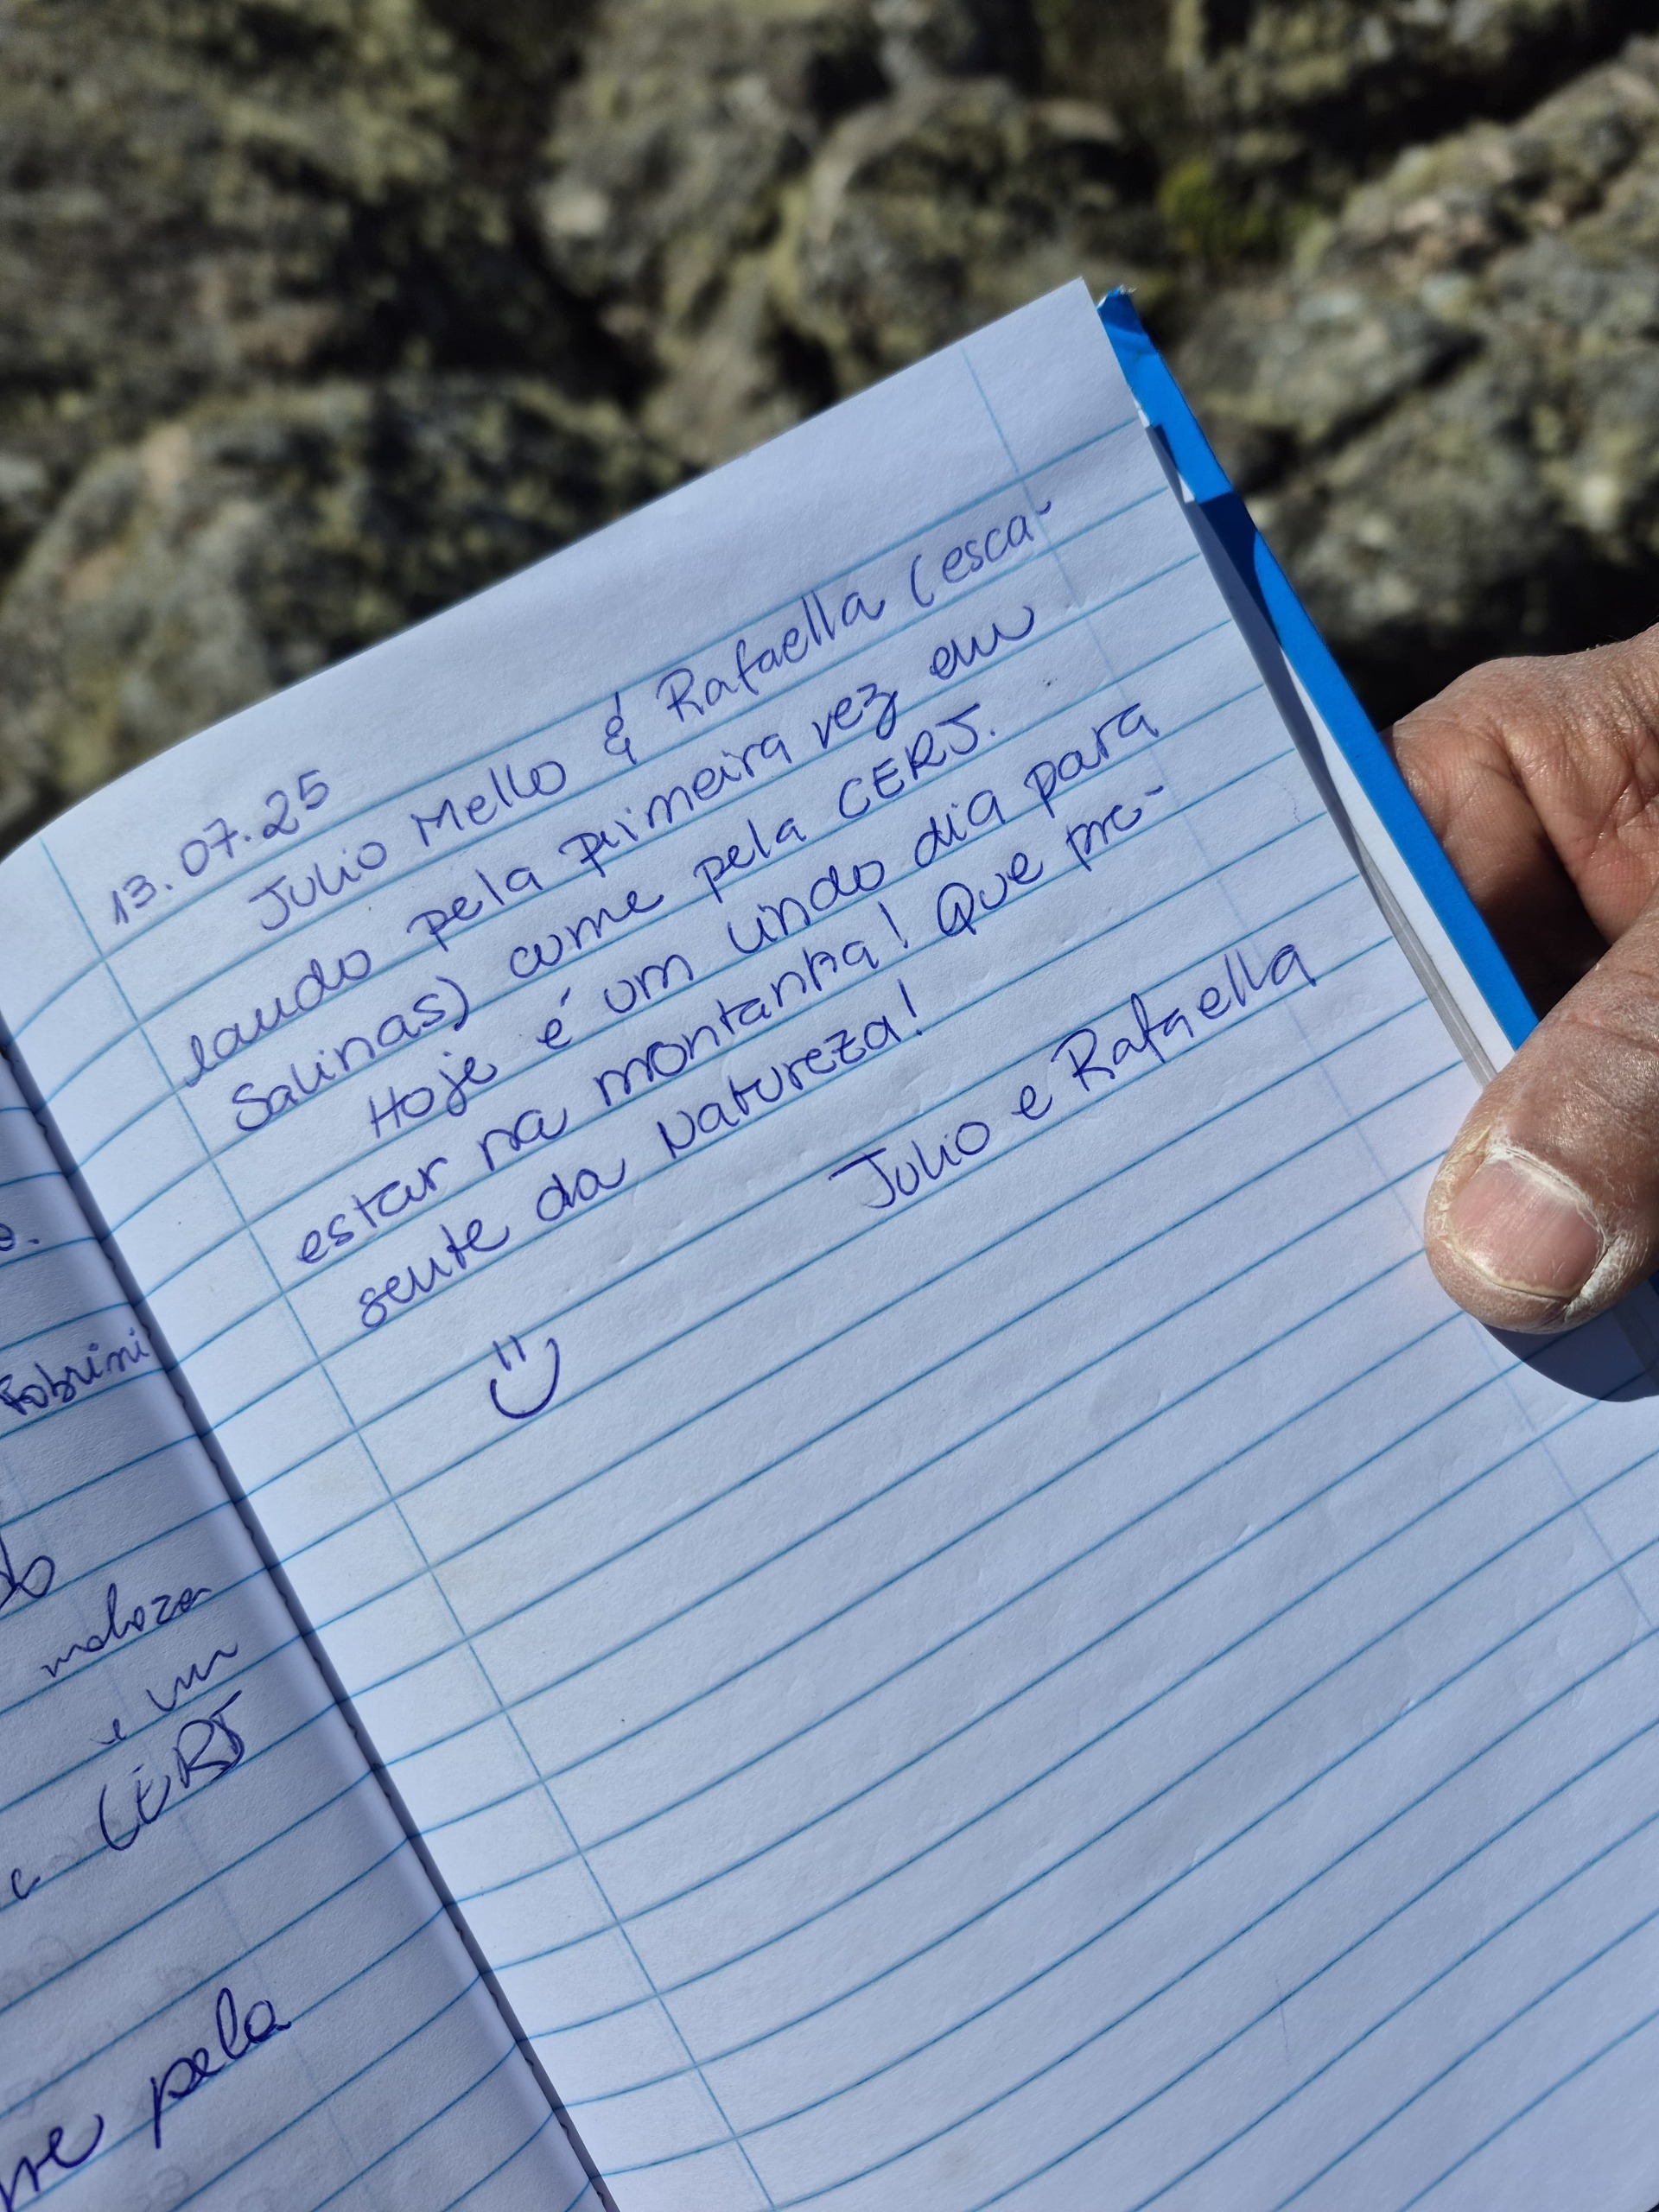 13.07.25
Julio Mello & Rafaella (esca-
lando pela primeira vez em
Salinas) cume pela CERJ.
Hoje é um lindo dia para
estar na montanha! Que pre-
sente da Natureza!
Julio e Rafaella
e.
Fabrini
é um
CERJ
pela